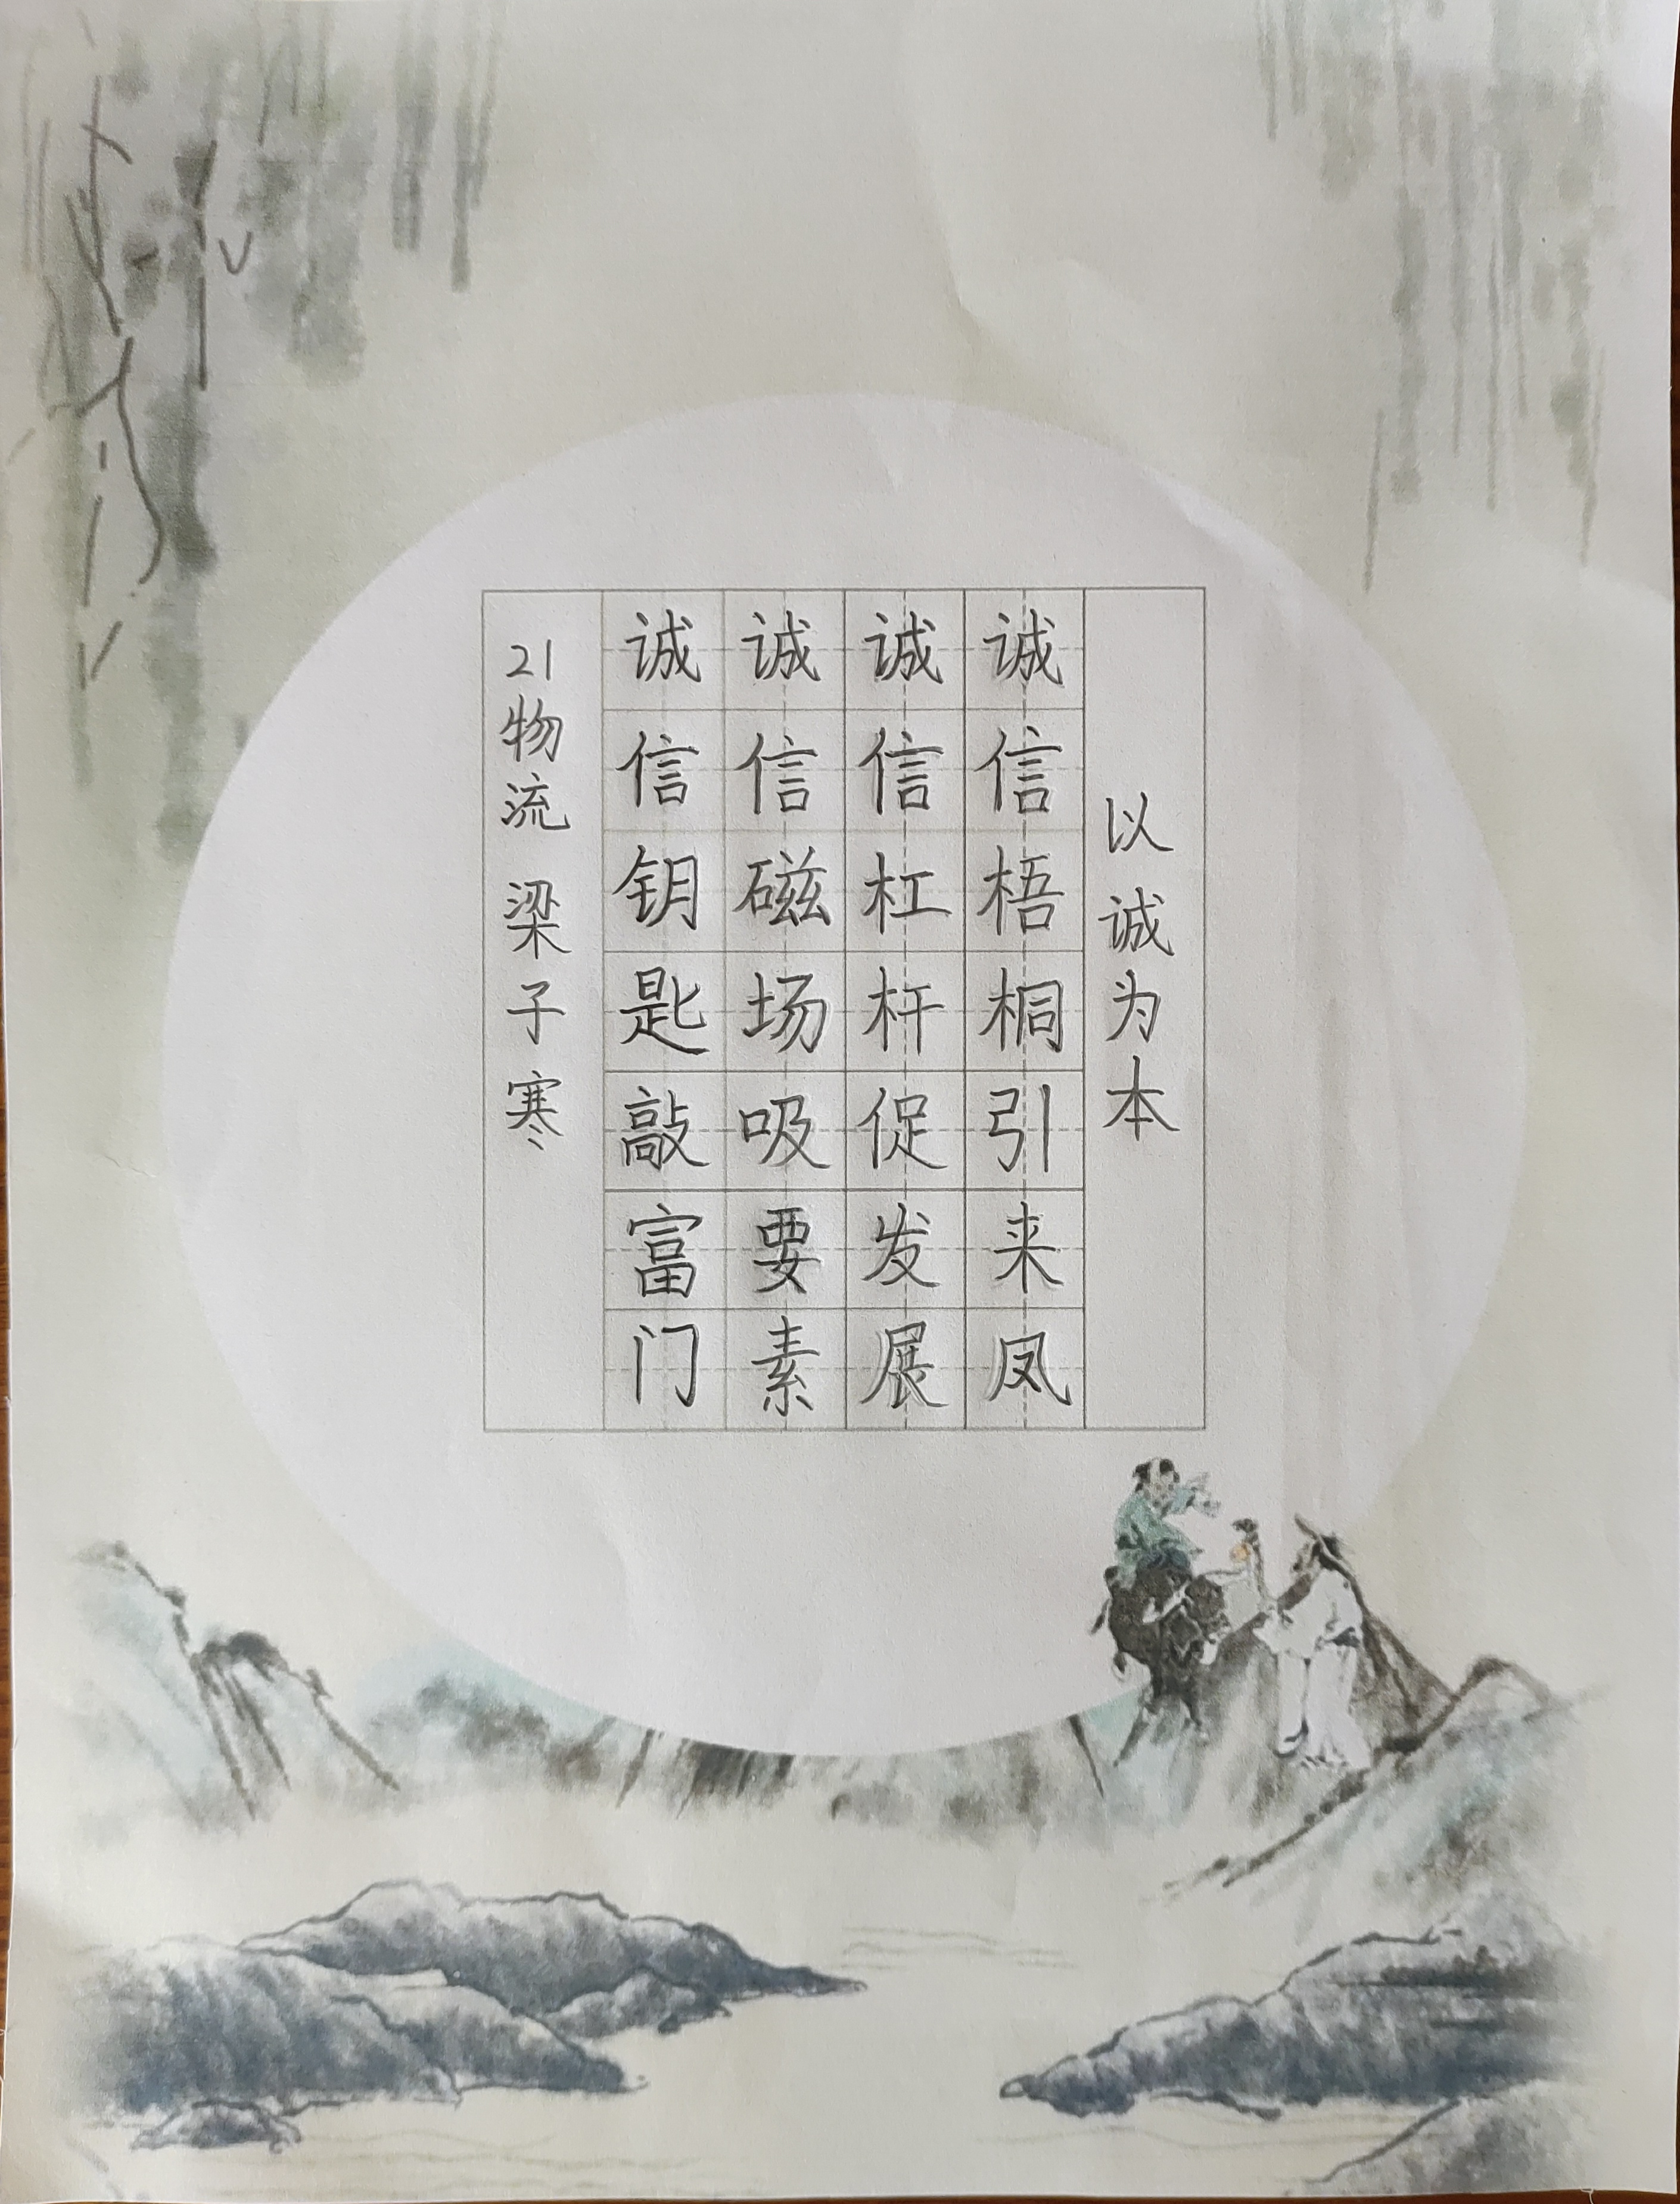 以诚为本
诚信梧桐引来凤
诚信杠杆促发展
诚信磁场吸要素
诚信钥匙敲富门
21物流 梁子寒